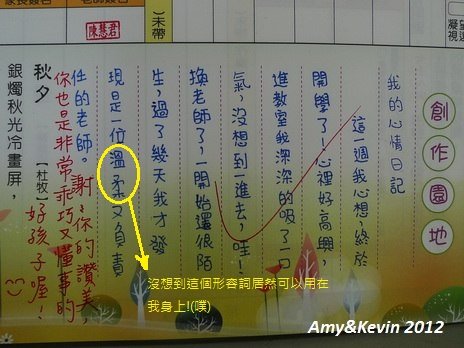 創作園地
我的心情日記
這一週我心想,終於
開學了,心裡好高興,
進教室我深深的吸了一口
氣,沒想到一進去,哇!
換老師了,一開始還很陌
生,過了幾天我才發
現是一位溫柔又負責
任的老師。謝〻你的讚美,
你也是非常乖巧又懂事的
好孩子喔!
秋夕【杜牧】
銀燭秋光冷畫屏,
陳慧君
未帶
沒想到這個形容詞居然可以用在
我身上!(噗)
Amy&Kevin 2012